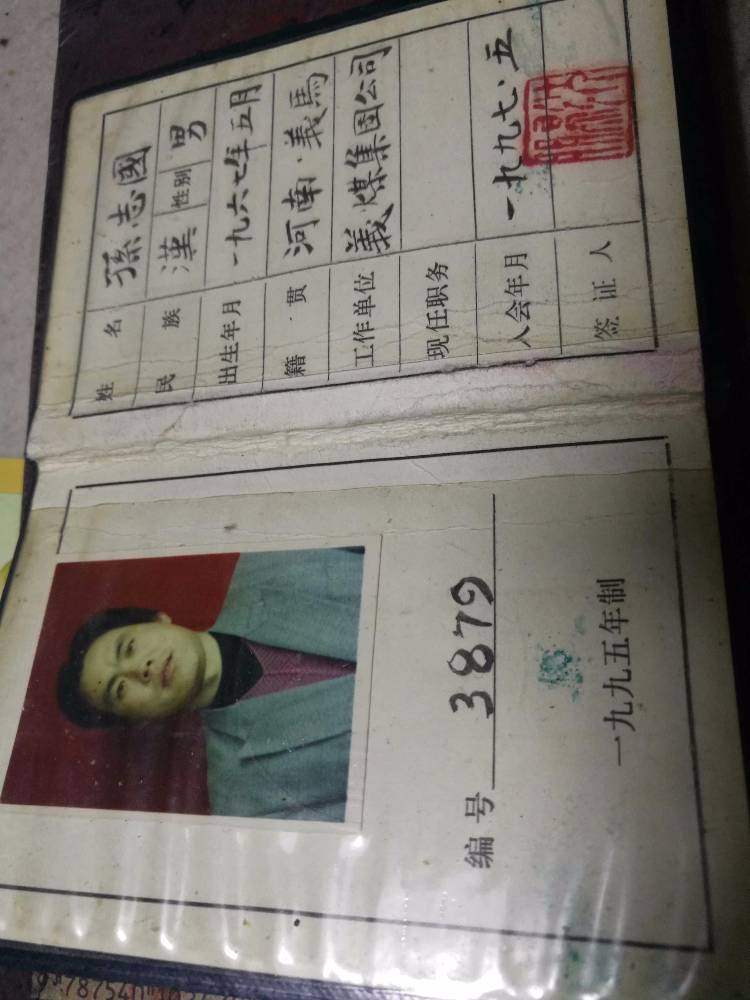 姓名 孫志國
民族 漢 性别 男
出生年月 一九六七年五月
籍贯 河南·義馬
工作单位 義煤集团公司
现任职务
入会年月 一九九七·五
签证人
编号 3879
一九九五年制